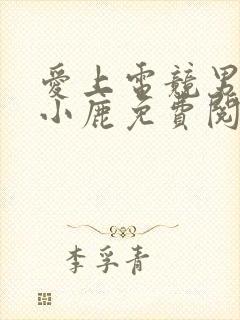 愛上電競男
小鹿免費閱
李孚青